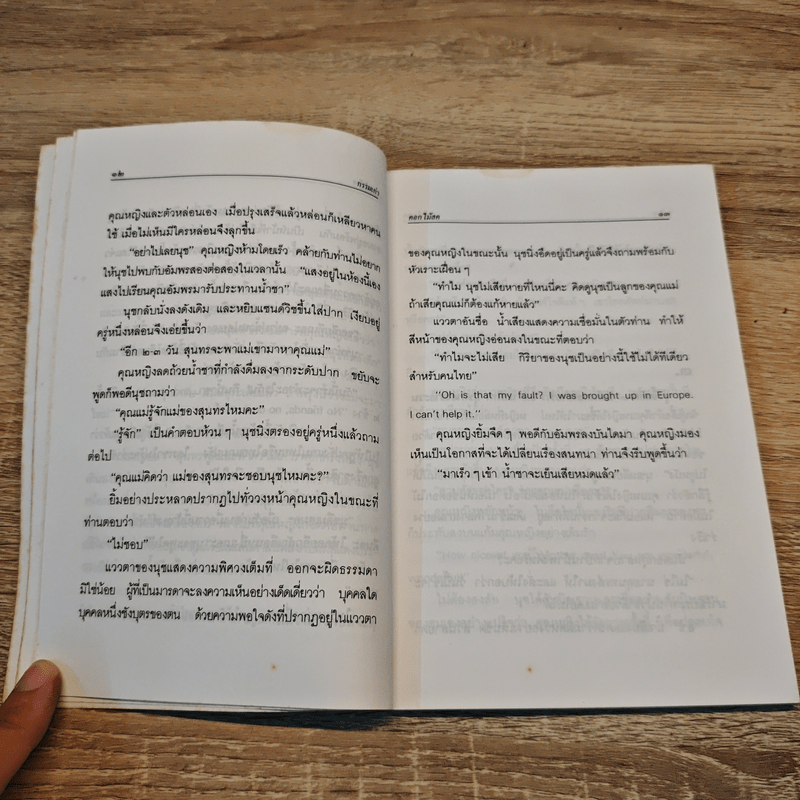 ๑๒
กรรมเก่า
คุณหญิงและตัวหล่อนเอง เมื่อปรุงเสร็จแล้วหล่อนก็เหลียวหาคน
ใช้ เมื่อไม่เห็นมีใครหล่อนจึงลุกขึ้น
"อย่าไปเลยนุช" คุณหญิงห้ามโดยเร็ว คล้ายกับท่านไม่อยาก
ให้นุชไปพบกับอัมพรสองต่อสองในเวลานั้น "แสงอยู่ในห้องนี้เอง
แสงไปเรียนคุณอัมพรมารับประทานน้ำชา"
นุชกลับนั่งลงดังเดิม และหยิบแซนด์วิชขึ้นใส่ปาก เงียบอยู่
ครู่หนึ่งหล่อนจึงเอ่ยขึ้นว่า
"อีก ๒-๓ วัน สุนทรจะพาแม่เขามาหาคุณแม่"
คุณหญิงลดถ้วยน้ำชาที่กำลังดื่มลงจากระดับปาก ขยับจะ
พูดก็พอดีนุชถามว่า
"คุณแม่รู้จักแม่ของสุนทรไหมคะ"
"รู้จัก" เป็นคำตอบห้วน ๆ นุชนิ่งตรองอยู่ครู่หนึ่งแล้วถาม
ต่อไป
"คุณแม่คิดว่า แม่ของสุนทรจะชอบนุชไหมคะ?"
ยิ้มอย่างประหลาดปรากฏไปทั่ววงหน้าคุณหญิงในขณะที่
ท่านตอบว่า
"ไม่ชอบ"
แววตาของนุชแสดงความพิศวงเต็มที่ ออกจะผิดธรรมดา
มิใช่น้อย ผู้ที่เป็นมารดาจะลงความเห็นอย่างเด็ดเดี่ยวว่า บุคคลใด
บุคคลหนึ่งชังบุตรของตน ด้วยความพอใจดังที่ปรากฏอยู่ในแววตา
ดอกไม้สด
๑๓
ของคุณหญิงในขณะนั้น นุชนิ่งอึดอยู่เป็นครู่แล้วจึงถามพร้อมกับ
หัวเราะเฝื่อน ๆ
"ทำไม นุชไม่เสียหายที่ไหนนี่คะ คิดดูนุชเป็นลูกของคุณแม่
ถ้าเสียคุณแม่ก็ต้องแก้หายแล้ว"
แววตาอันซื่อ น้ำเสียงแสดงความเชื่อมั่นในตัวท่าน ทำให้
สีหน้าของคุณหญิงอ่อนลงในขณะที่ตอบว่า
"ทำไมจะไม่เสีย กิริยาของนุชเป็นอย่างนี้ใช้ไม่ได้ทีเดียว
สำหรับคนไทย"
"Oh is that my fault? I was brought up in Europe.
I can't help it."
คุณหญิงยิ้มจืด ๆ พอดีกับอัมพรลงบันไดมา คุณหญิงมอง
เห็นเป็นโอกาสที่จะได้เปลี่ยนเรื่องสนทนา ท่านจึงรีบพูดขึ้นว่า
"มาเร็ว ๆ เข้า น้ำชาจะเย็นเสียหมดแล้ว"